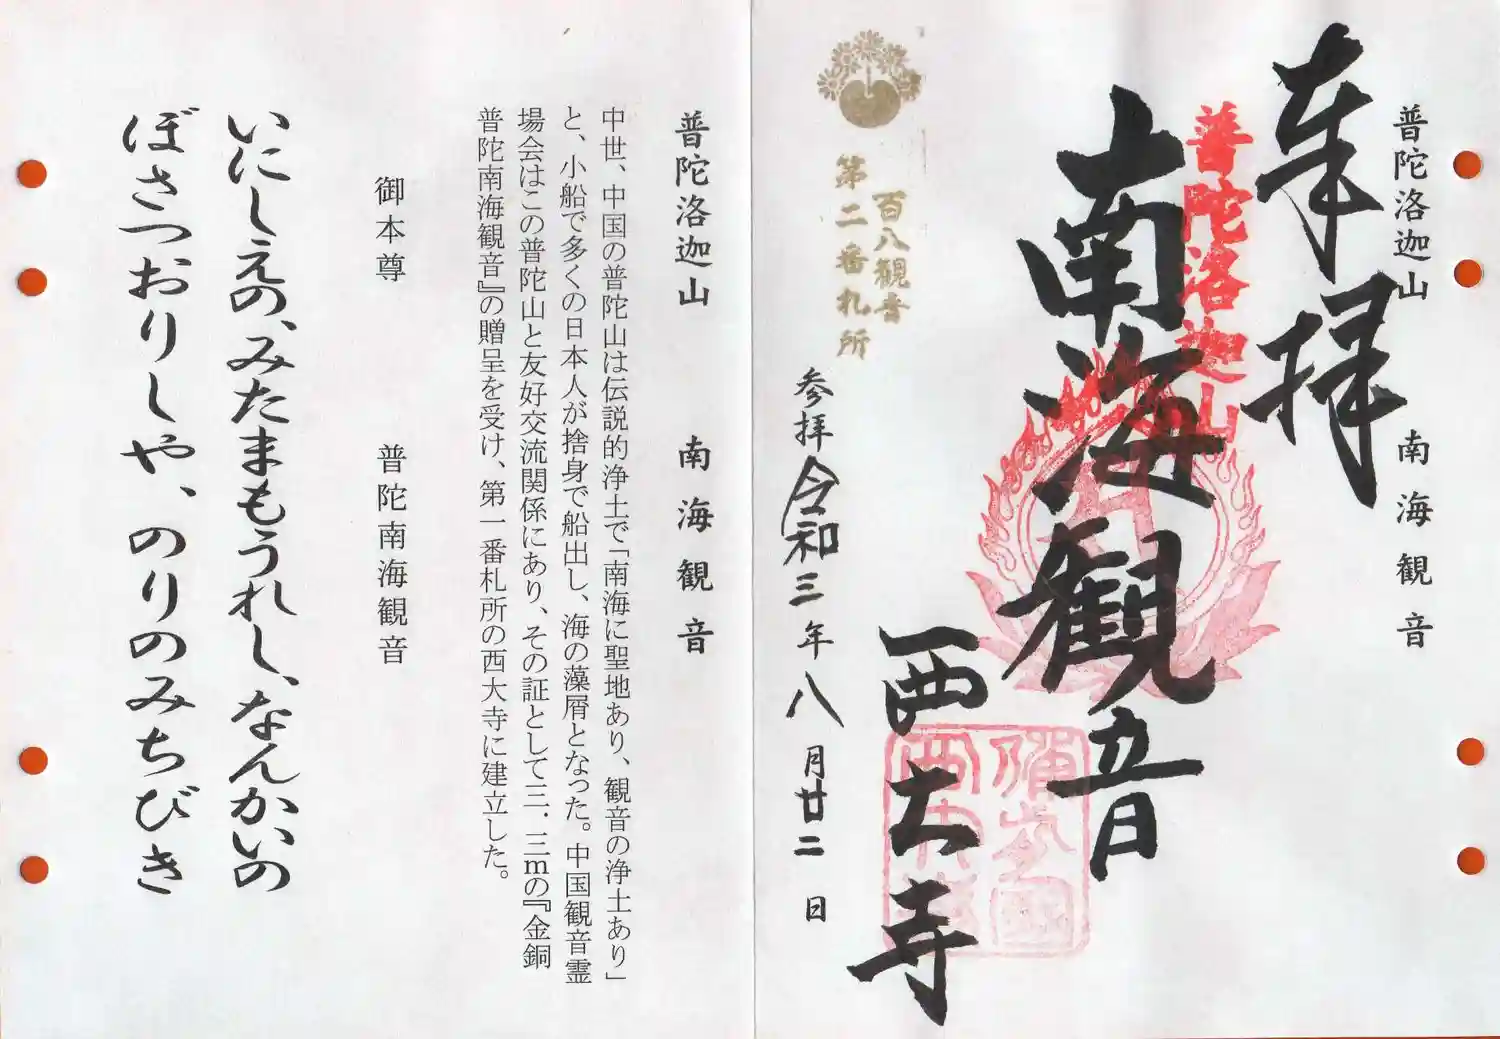 普陀洛迦山　南海観音
奉拝
普陀洛迦山
南海観音
西大寺
百八観音
第二番札所
参拝令和三年八月廿二日
普陀洛迦山　南海観音
中世、中国の普陀山は伝説的浄土で「南海に聖地あり、観音の浄土あり」
と、小船で多くの日本人が捨身で船出し、海の藻屑となった。中国観音霊
場会はこの普陀山と友好交流関係にあり、その証として三.三mの『金銅
普陀南海観音』の贈呈を受け、第一番札所の西大寺に建立した。
御本尊　普陀南海観音
いにしえの、みたまもうれし、なんかいの
ぼさつおりしや、のりのみちびき